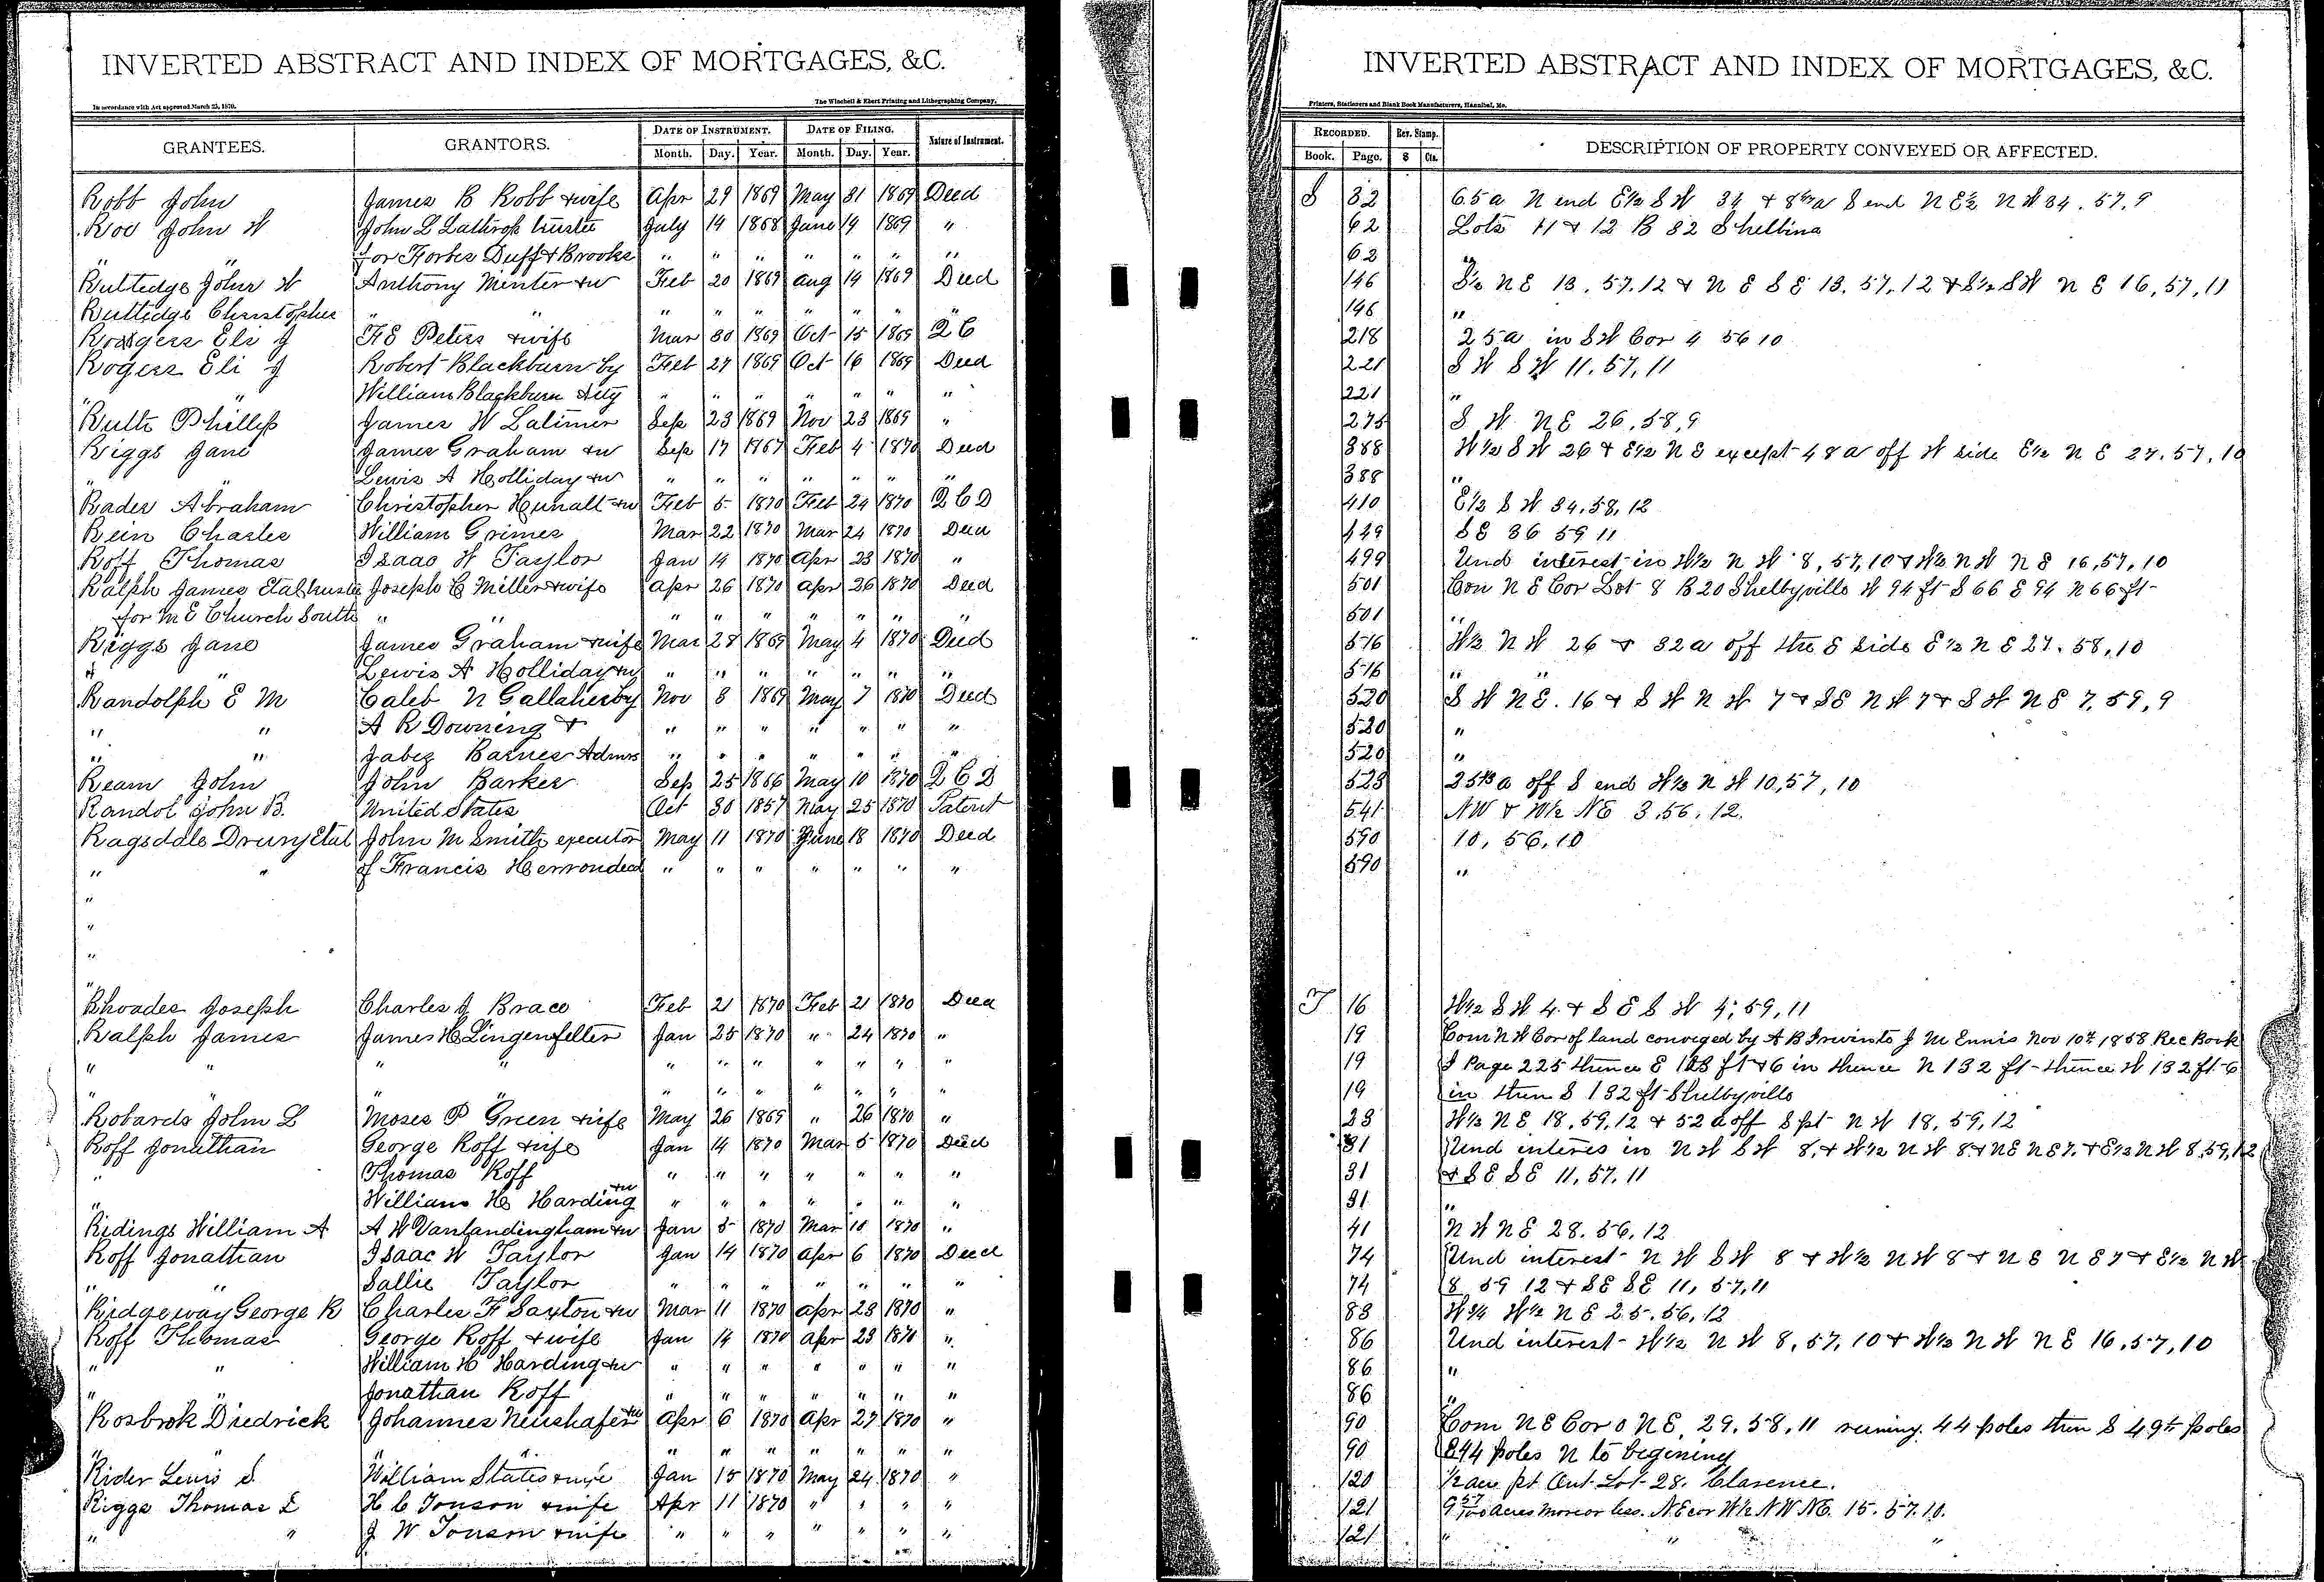 INVERTED ABSTRACT AND INDEX OF MORTGAGES, &C.
In accordance with Act approved March 25, 1870.
The Winchell & Ebert Printing and Lithographing Company,
GRANTEES. GRANTORS. DATE OF INSTRUMENT. DATE OF FILING. Nature of Instrument.
Month. Day. Year. Month. Day. Year.
Robb John James B Robb & wife Apr 29 1869 May 31 1869 Deed
Roe John W John L Lathrop trustee July 14 1868 June 19 1869 "
" " for Forbes Duff & Brooks " " " " " " "
Rutledge John W Anthony Minter & w Feb 20 1869 Aug 14 1869 Deed
Rutledge Christopher " " " " " " " " "
Rodgers Eli J H E Peters & wife Mar 30 1869 Oct 15 1869 Q C
Rogers Eli J Robert Blackburn by Feb 27 1869 Oct 16 1869 Deed
" " William Blackburn Atty " " " " " " "
Rutt Phillip James W Latimer Sep 23 1869 Nov 23 1869 "
Riggs Jane James Graham & w Sep 17 1867 Feb 4 1870 Deed
" Lewis A Holliday & w " " " " " " "
Rader Abraham Christopher Hunalt & w Feb 5 1870 Feb 24 1870 Q C D
Rein Charles William Grimes Mar 22 1870 Mar 24 1870 Deed
Roff Thomas Isaac W Taylor Jan 14 1870 Apr 23 1870 "
Ralph James Etal trustee Joseph C Miller & wife Apr 26 1870 Apr 26 1870 Deed
for M E Church South " " " " " " " " "
Riggs Jane James Graham & wife Mar 28 1869 May 4 1870 Deed
" " Lewis A Holliday & w " " " " " " "
Randolph E M Caleb N Gallaher by Nov 8 1869 May 7 1870 Deed
" " A R Downing & " " " " " " "
" " Jabez Barnes Admrs " " " " " " "
Ream John John Barker Sep 25 1866 May 10 1870 Q C D
Randol John B. United States Oct 30 1857 May 25 1870 Patent
Ragsdale Drury Etal John M Smith executor May 11 1870 June 18 1870 Deed
" " of Francis Herron decd " " " " " " "
"
"
"
"
Rhoades Joseph Charles J Brace Feb 21 1870 Feb 21 1870 Deed
Ralph James James H Lingenfelter Jan 25 1870 " 24 1870 "
" " " " " " " " " " "
" " " " " " " " " "
Robards John L Moses P Green & wife May 26 1869 " 26 1870 "
Roff Jonathan George Roff & wife Jan 14 1870 Mar 5 1870 Deed
" Thomas Roff " " " " " " "
" William H Harding & w " " " " " " "
Ridings William A A W Vanlandingham & w Jan 5 1870 Mar 10 1870 "
Roff Jonathan Isaac W Taylor Jan 14 1870 Apr 6 1870 Deed
" " Sallie Taylor " " " " " " "
Ridgeway George R Charles F Saxton & w Mar 11 1870 Apr 23 1870 "
Roff Thomas George Roff & wife Jan 14 1870 Apr 23 1870 "
" " William H Harding & w " " " " " " "
" " Jonathan Roff " " " " " " "
Rosbrok Diedrick Johannes Neushafer & w Apr 6 1870 Apr 27 1870 "
" " " " " " " " " "
Rider Lewis S. William States & wife Jan 15 1870 May 24 1870 "
Riggs Thomas L H C Tonson & wife Apr 11 1870 " " " "
" " J W Tonson & wife " " " " " " "
INVERTED ABSTRACT AND INDEX OF MORTGAGES, &C.
Printers, Stationers and Blank Book Manufacturers, Hannibal, Mo.
RECORDED. Rev. Stamp. DESCRIPTION OF PROPERTY CONVEYED OR AFFECTED.
Book. Page. $ Cts.
S 32 65 a N end E½ S W 34 & S end N E½ N W 34. 57. 9
62 Lots 11 & 12 B 32 Shelbina
62 "
146 S½ N E 13. 57. 12 & N E S E 13. 57. 12 & S½ S W N E 16, 57, 11
146 "
218 25 a in S W Cor 4 56 10
221 S W S W 11. 57, 11
221 "
275 S W N E 26, 58, 9
388 W½ S W 26 & E½ N E except 48 a off W side E½ N E 27. 57. 10
388 "
410 E½ S W 34, 58, 12
449 S E 36 59 11
499 Und interest in W½ N W 8, 57, 10 & W½ N W N E 16, 57, 10
501 Com N E Cor Lot 8 B 20 Shelbyville W 94 ft S 66 E 94 N 66 ft
501 "
516 W½ N W 26 & 32 a off the E side E½ N E 27. 58, 10
516 " "
520 S W N E. 16 & S W N W 7 & S E N W 7 & S W N E 7, 59, 9
520 "
520 "
523 a off S end W½ N W 10, 57, 10
541 NW & W½ NE 3. 56. 12.
590 10, 56, 10
590 "
T 16 W½ S W 4 & S E S W 4, 59, 11
19 Com N W Cor of land conveyed by A B Irwin to J M Ennis Nov 10th 1858 Rec Book
19 I Page 225 thence E 123 ft & 6 in thence N 132 ft thence W 132 ft 6
19 in then S 132 ft Shelbyville
23 W½ N E 18, 59, 12 & 52 a off S pt N W 18, 59, 12
31 Und interes in N W S W 8, & W½ N W 8 & N E N E 7. & E½ N W 8, 59, 12
31 & S E S E 11, 57, 11
31 "
41 N W N E 28. 56, 12
74 Und interest N W S W 8 & W½ N W 8 & N E N E 7 & E½ N W
74 8 59 12 & S E S E 11, 57, 11
83 W¾ W½ N E 25. 56, 12
86 Und interest W½ N W 8, 57, 10 & W½ N W N E 16, 57, 10
86 "
86 "
90 Com N E Cor o N E, 29. 58, 11 runing 44 poles then S poles
90 E 44 poles N to begining
120 ½ acre pt Out Lot 28. Clarence.
121 9 57/100 Acres more or less. N E cor W½ N W N E. 15. 57. 10.
121 " " "